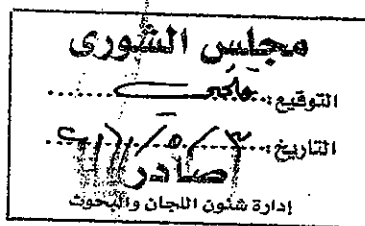 مجلس الشورى
التوقيع:
التاريخ:
صادر
إدارة شئون اللجان والبحوث